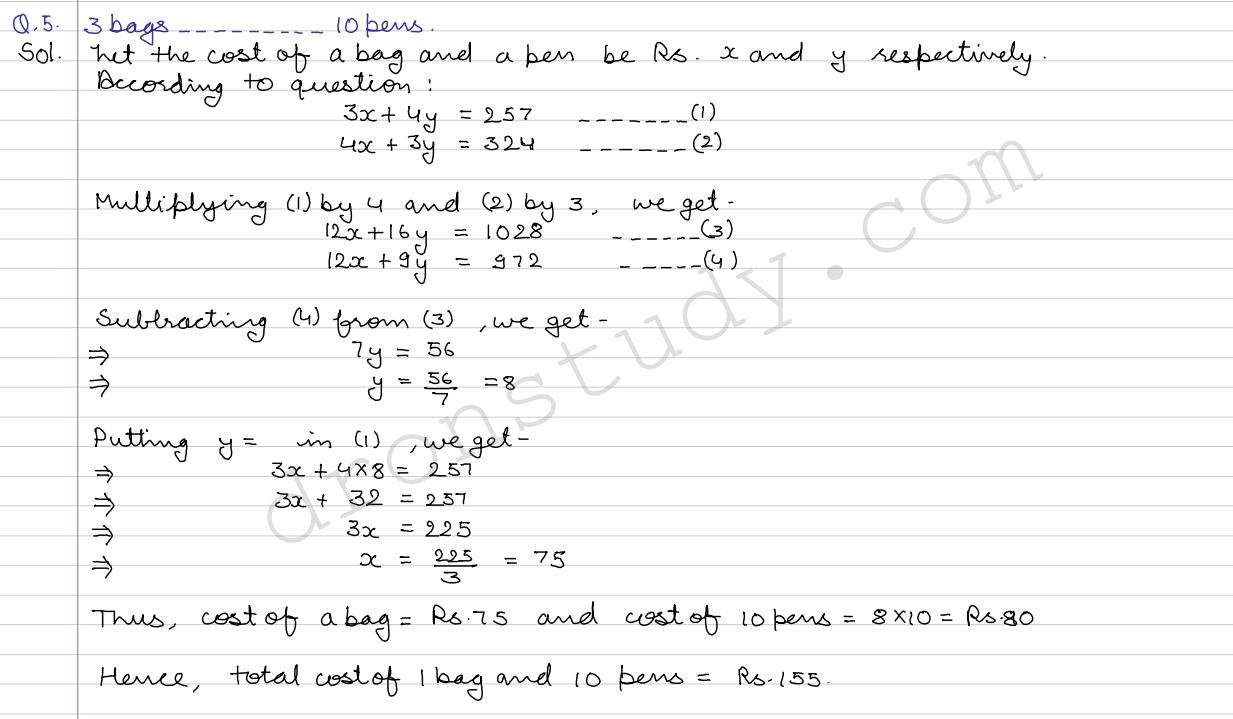 Q.5. 3 bags --------- 10 pens.
Sol. Let the cost of a bag and a pen be Rs. x and y respectively.
According to question :
3x + 4y = 257 -------(1)
4x + 3y = 324 ------(2)
Multiplying (1) by 4 and (2) by 3, we get -
12x + 16y = 1028 ------(3)
12x + 9y = 972 ------(4)
Subtracting (4) from (3) , we get -
⇒ 7y = 56
⇒ y = 56/7 = 8
Putting y = in (1) , we get -
⇒ 3x + 4×8 = 257
⇒ 3x + 32 = 257
⇒ 3x = 225
⇒ x = 225/3 = 75
Thus, cost of a bag = Rs.75 and cost of 10 pens = 8×10 = Rs.80
Hence, total cost of 1 bag and 10 pens = Rs.155.
dronstudy.com